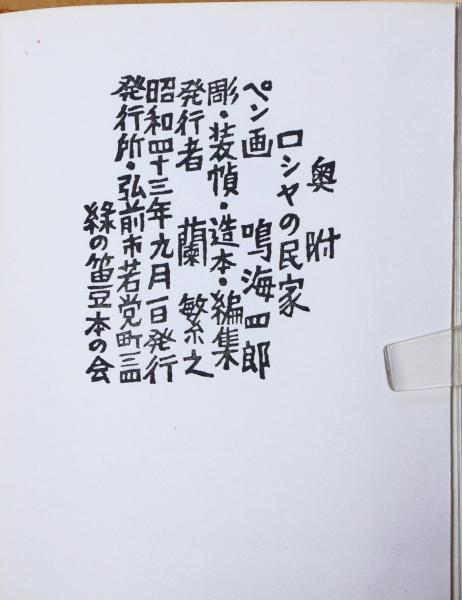 奥附
ロシヤの民家
ペン画 鳴海四郎
彫・装幀・造本・編集
発行者 蘭繁之
昭和四十三年九月一日発行
発行所・弘前市若党町三四
緑の笛豆本の会